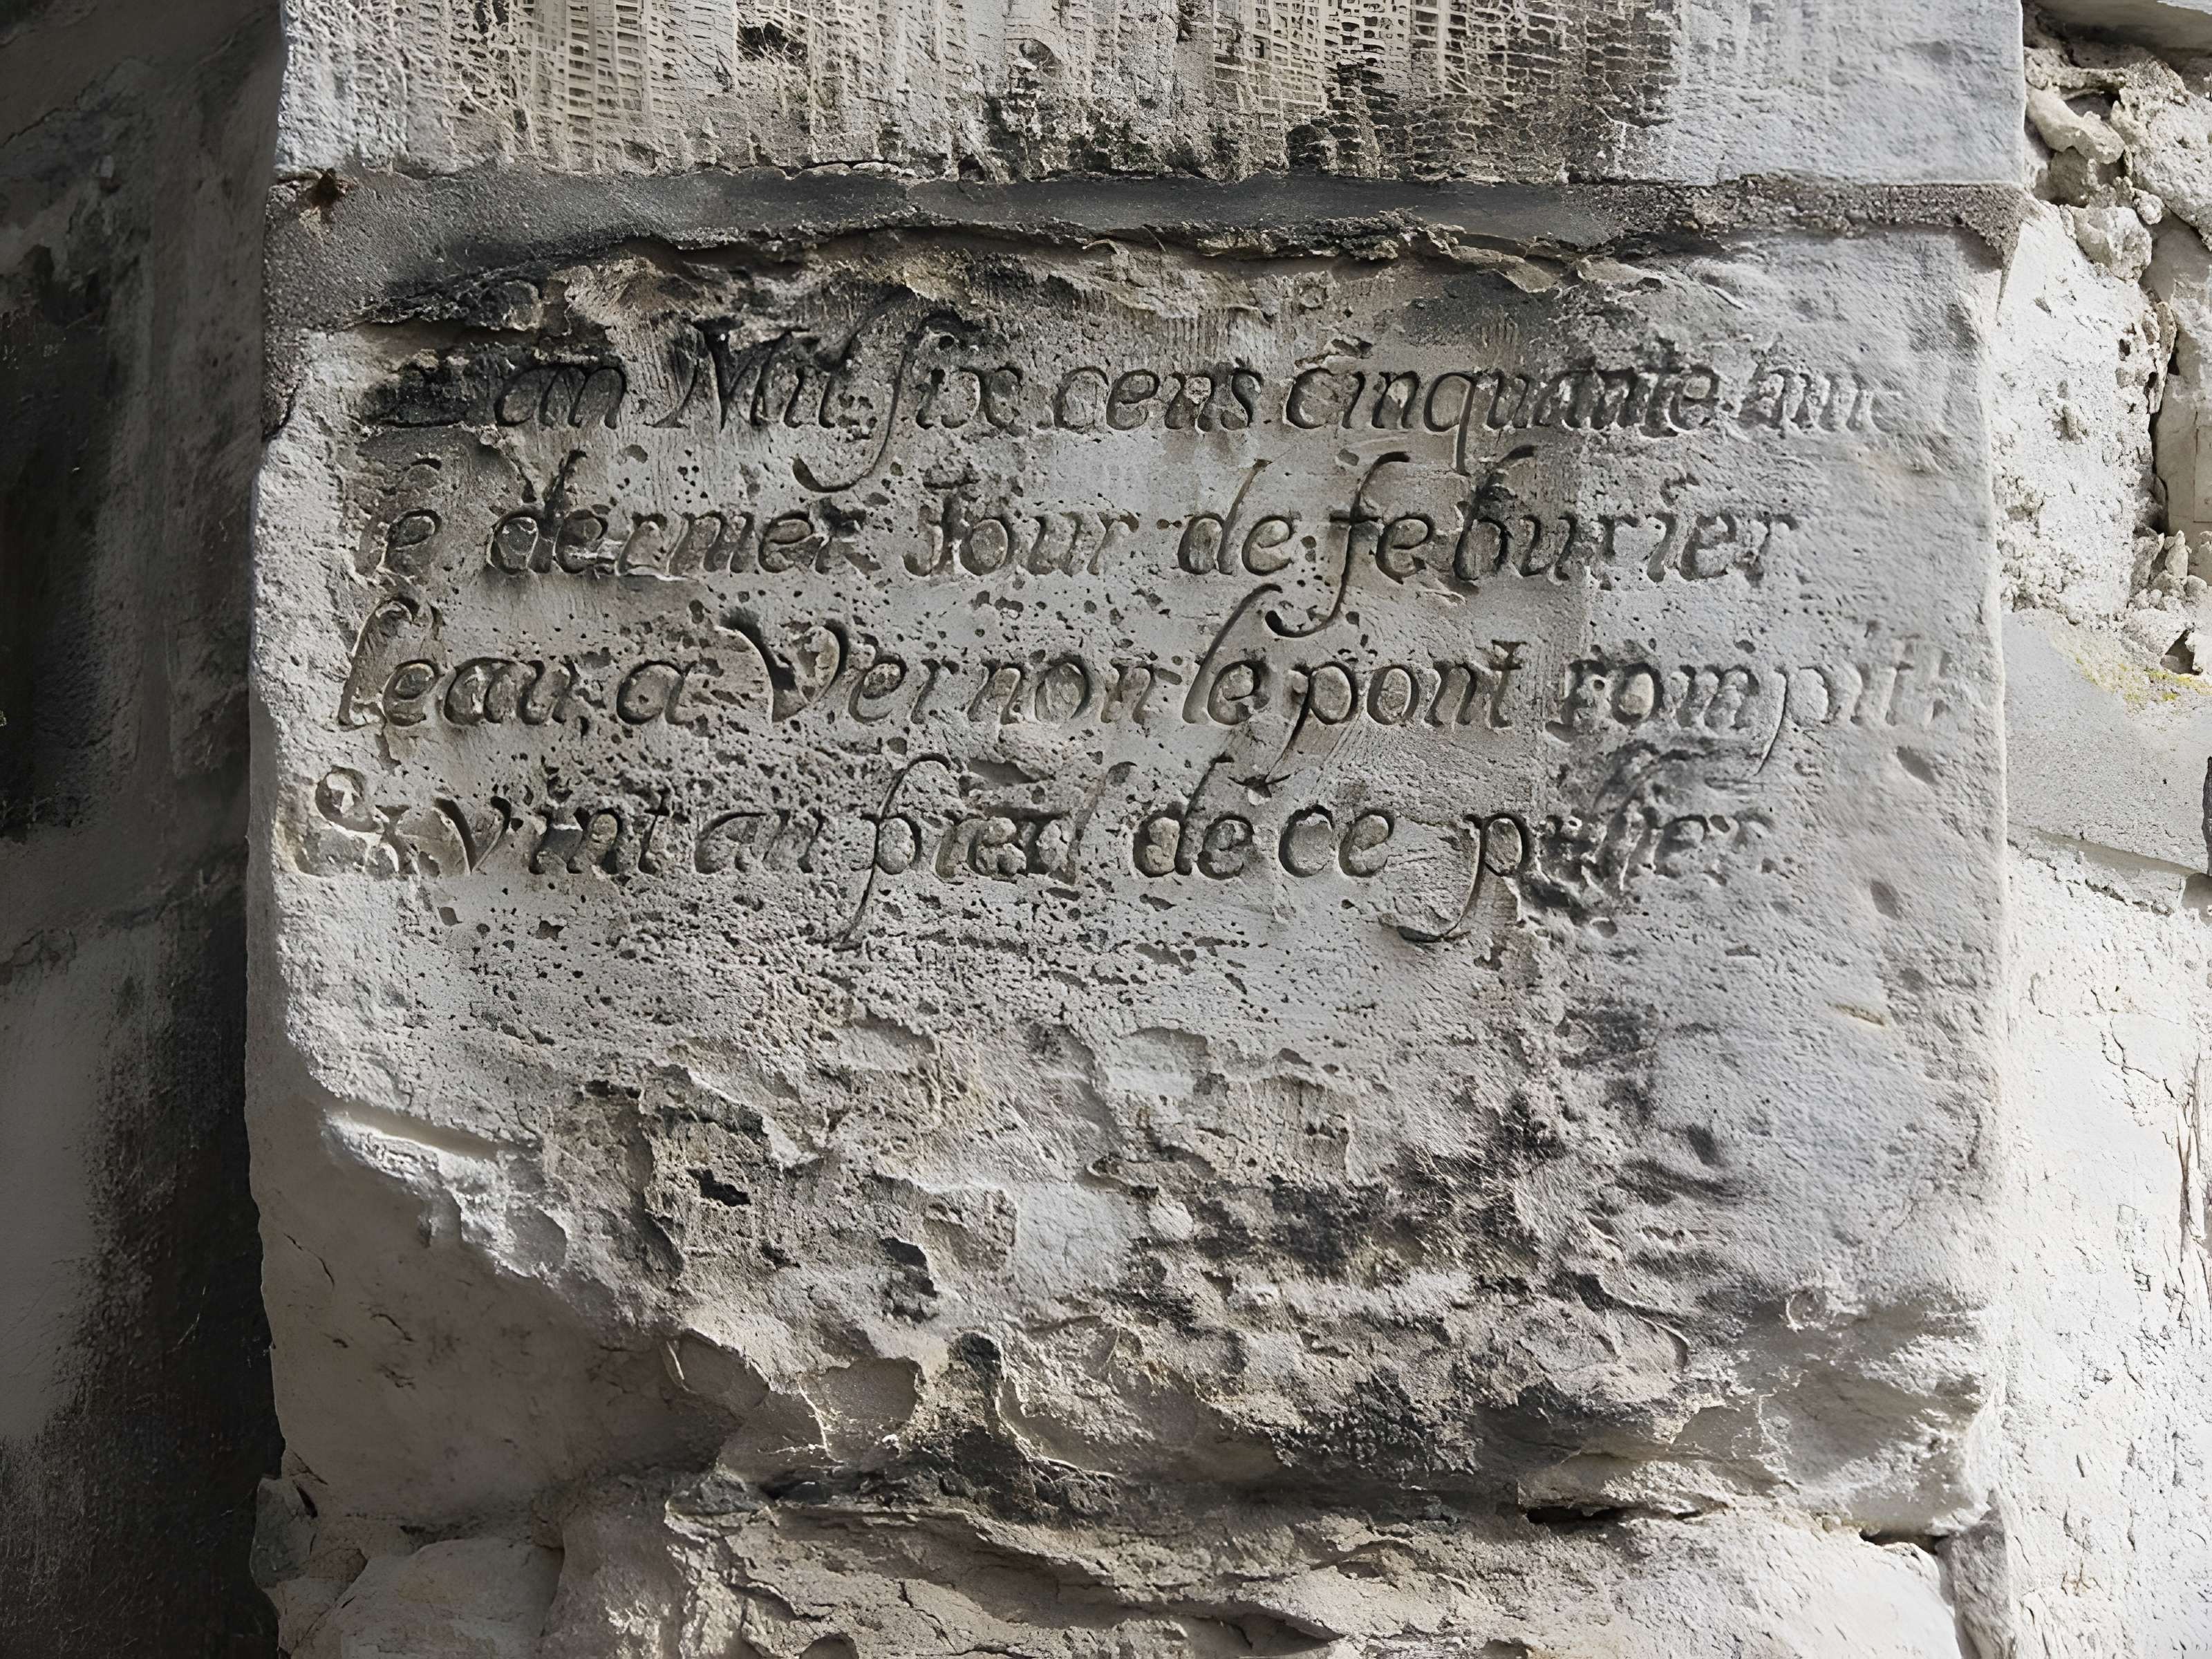 L'an Mil six cens cinquante huict
le dernier Jour de feburier
l'eau, a Vernon le pont rompit
& vint au pied de ce pilier